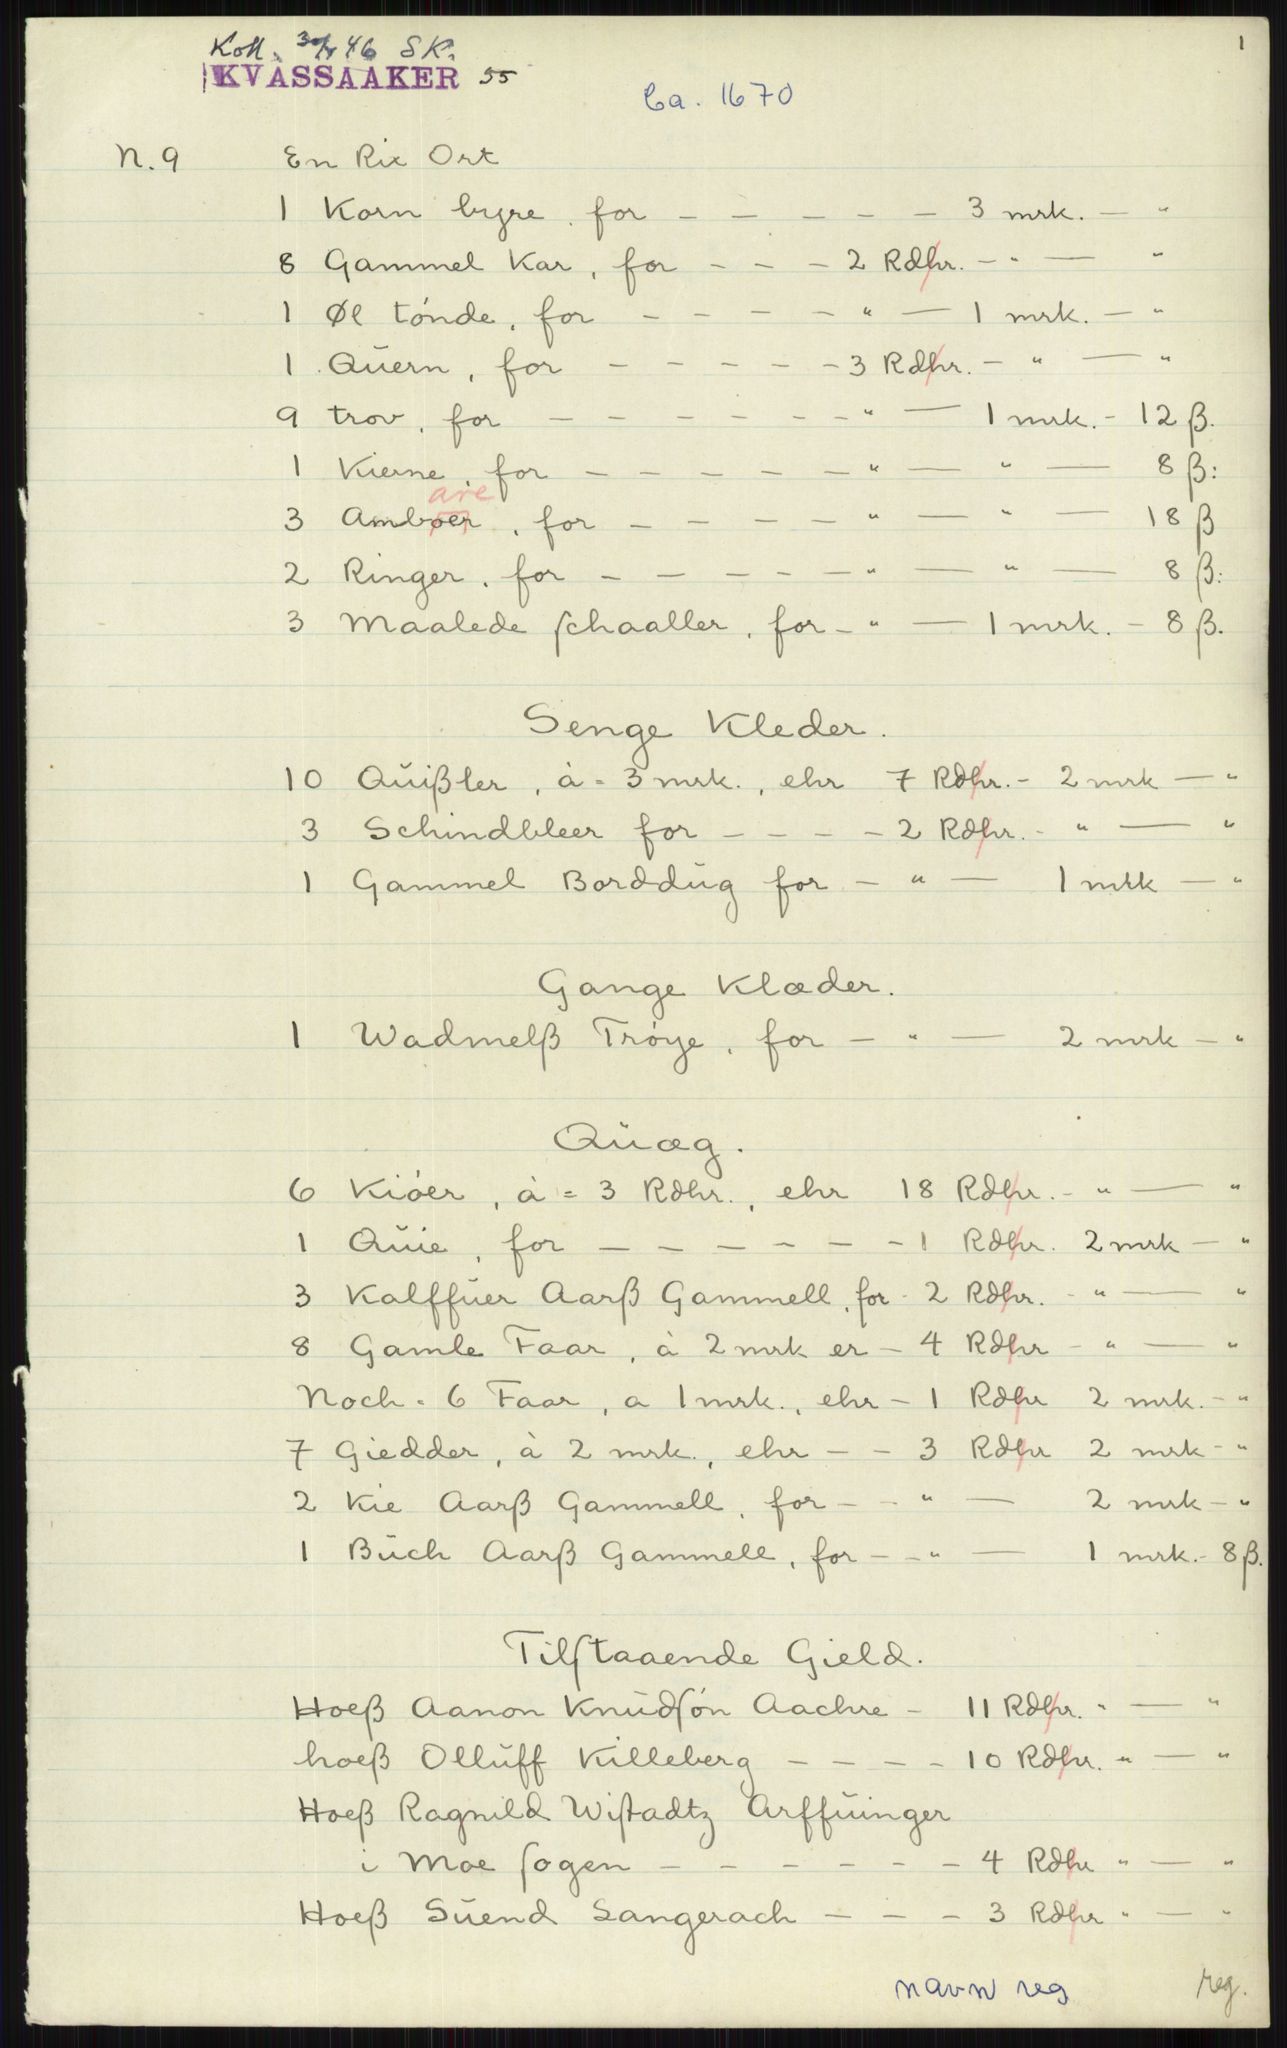 Koll. 30/4 46 SK.
1
KVASSAAKER 55
Ca. 1670
N. 9 En Rix Ort
1 Korn byre, for - - - - - 3 mrk. - "
8 Gammel Kar, for - - - 2 Rdhr. - " - "
1 Øl tónde, for - - - - " - 1 mrk. - "
1 Qŭern, for - - - - - 3 Rdhr. - " - "
9 trov, for - - - - - - " - 1 mrk. - 12 ß.
1 Kierne, for - - - - - " - " - 8 ß:
are
3 Amboer, for - - - - " - " - 18 ß
2 Ringer, for - - - - - " - " - 8 ß:
3 Maalede ſchaaller, for - " - 1 mrk. - 8 ß.
Senge Kleder.
10 Qŭißler, à = 3 mrk., ehr 7 Rdhr. - 2 mrk - "
3 Schindbleer for - - - - 2 Rdhr. - " - "
1 Gammel Borddŭg for - " - 1 mrk - "
Gange Klæder.
1 Wadmelß Tróye, for - " - 2 mrk - "
Qŭæg.
6 Kióer, à = 3 Rdhr., ehr 18 Rdhr. - " - "
1 Qŭie, for - - - - - - 1 Rdhr. 2 mrk - "
3 Kalffŭer Aarß Gammell, for - 2 Rdhr. - " - "
8 Gamle Faar, à 2 mrk er - 4 Rdhr - " - "
Noch = 6 Faar, a 1 mrk., ehr - 1 Rdhr 2 mrk. - "
7 Giedder, à 2 mrk., ehr - - 3 Rdhr 2 mrk - "
2 Kie Aarß Gammell, for - - " - 2 mrk - "
1 Bŭch Aarß Gammell, for - - " - 1 mrk. - 8 ß.
Tilſtaaende Gield.
Hoeß Aanon Knŭdſón Aachre - 11 Rdhr. " - "
hoeß Ollŭff Killeberg - - - - 10 Rdhr. " - "
Hoeß Ragnild Wiſtadtz Arffŭinger
i Moe ſogen - - - - - - 4 Rdhr " - "
Hoeß Sŭend Langerach - - - 3 Rdhr " - "
navn reg reg.